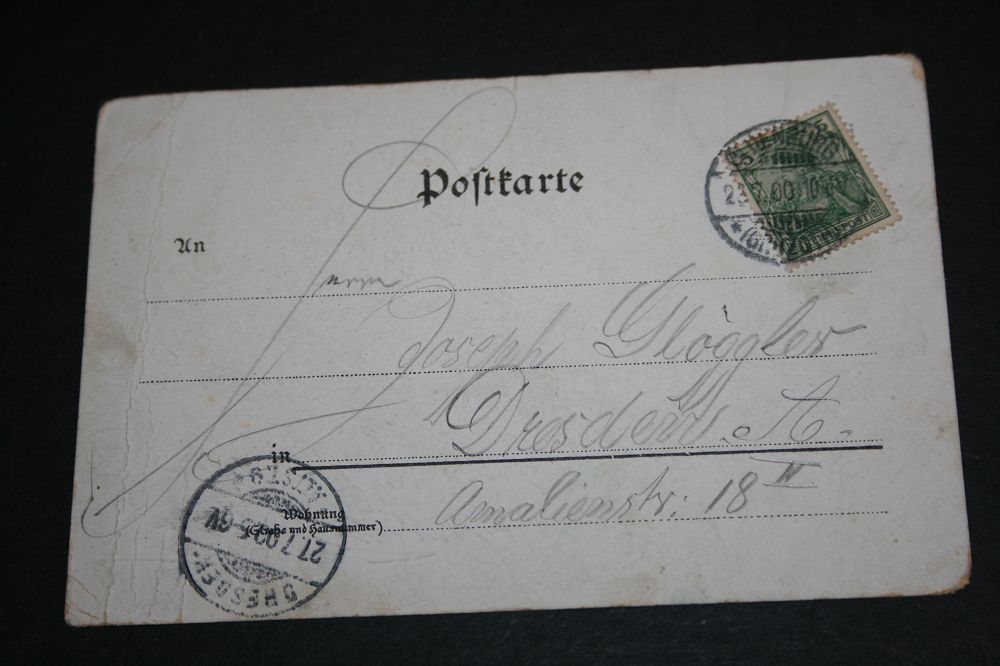 Postkarte
An
Herrn
Joseph Glöggler
in Dresden A.
Wohnung
(Straße und Hausnummer)
Amalienstr: 18 II
REICHSPOST
DRESDEN
27.7.